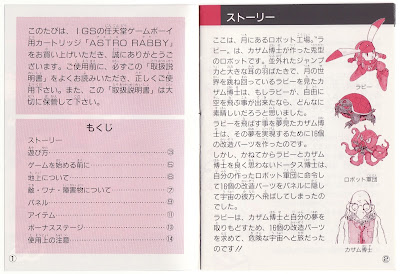 このたびは、IGSの任天堂ゲームボーイ
用カートリッジ「ASTRO RABBY」
をお買い上げいただき、誠にありがとうご
ざいます。ご使用前に、必ずこの「取扱説
明書」をよくお読みいただき、正しくご使
用下さい。また、この「取扱説明書」は大
切に保管して下さい。
もくじ
ストーリー
遊び方 ③
ゲームを始める前に ⑤
地上について ⑥
敵・ワナ・障害物について ⑦
パネル ⑨
アイテム ⑪
ボーナスステージ ⑬
使用上の注意 ⑭
①
ストーリー
ここは、月にあるロボット工場。"ラ
ビー"は、カザム博士が作った兎型
のロボットです。並外れたジャンプ
力と大きな耳の羽ばたきで、月の世
界を跳ね回っているラビーを見たカ
ザム博士は、もしラビーが、自由に
空を飛ぶ事が出来たなら、どんなに
素晴しいだろうと思いました。
ラビーを飛ばす事を夢見たカザム博
士は、その夢を実現するために16個
の改造パーツを作ったのです。
しかし、かねてからラビーとカザム
博士を良く思わないドータス博士は、
自分の作ったロボット軍団に命令し
て16個の改造パーツをパネルに隠し
て宇宙の彼方へ飛ばしてしまったの
でした。
ラビーは、カザム博士と自分の夢を
取りもどすため、16個の改造パーツ
を求めて、危険な宇宙へと旅だった
のです!!
ラビー
ロボット軍団
カザム博士
②